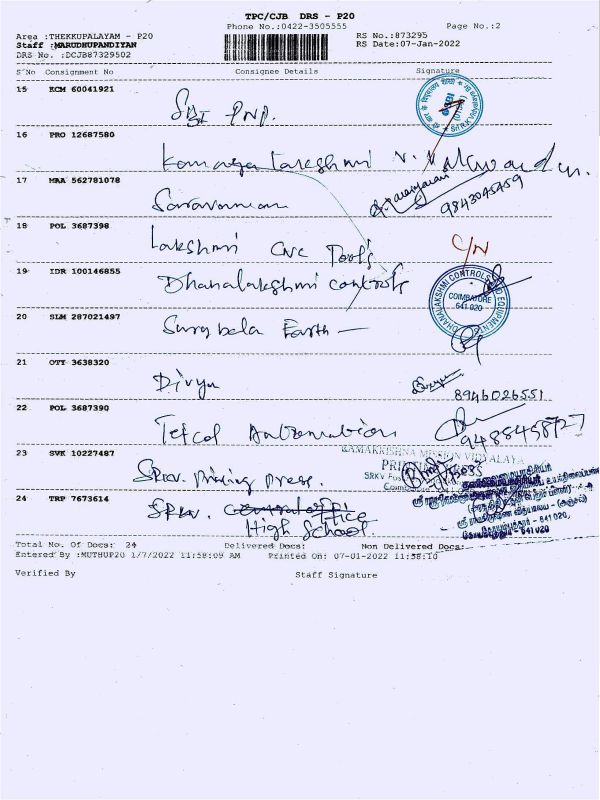 TPC/CJB DRS - P20
Phone No.:0422-3505555 Page No.:2
Area :THEKKUPALAYAM - P20 RS No.:873295
Staff :MARUDHUPANDIYAN RS Date:07-Jan-2022
DRS No. :DCJB87329502
S'No Consignment No Consignee Details Signature
15 KCM 60041921
16 PRO 12687580
17 MAA 562781078
Saravanan 9843045459
18 POL 3687398
Lakshmi CNC Tools C/N
19 IDR 100146855
Dhanalakshmi controls
DHANALAKSHMI CONTROLS AND EQUIPMENTS
COIMBATORE
641 020
20 SLM 287021497
Surya bala Earth
21 OTY 3638320
Divya 8946026551
22 POL 3687390
Tefcol Automation 9488458727
23 SVK 10227487
RAMAKRISHNA MISSION VIDYALAYA
SRKV. Printing press.
24 TRP 7673614
SRKV.
High School
Total No. Of Docs: 24 Delivered Docs: Non Delivered Docs:
Entered By :MUTHUP20 1/7/2022 11:58:09 AM Printed On: 07-01-2022 11:58:10
Verified By Staff Signature